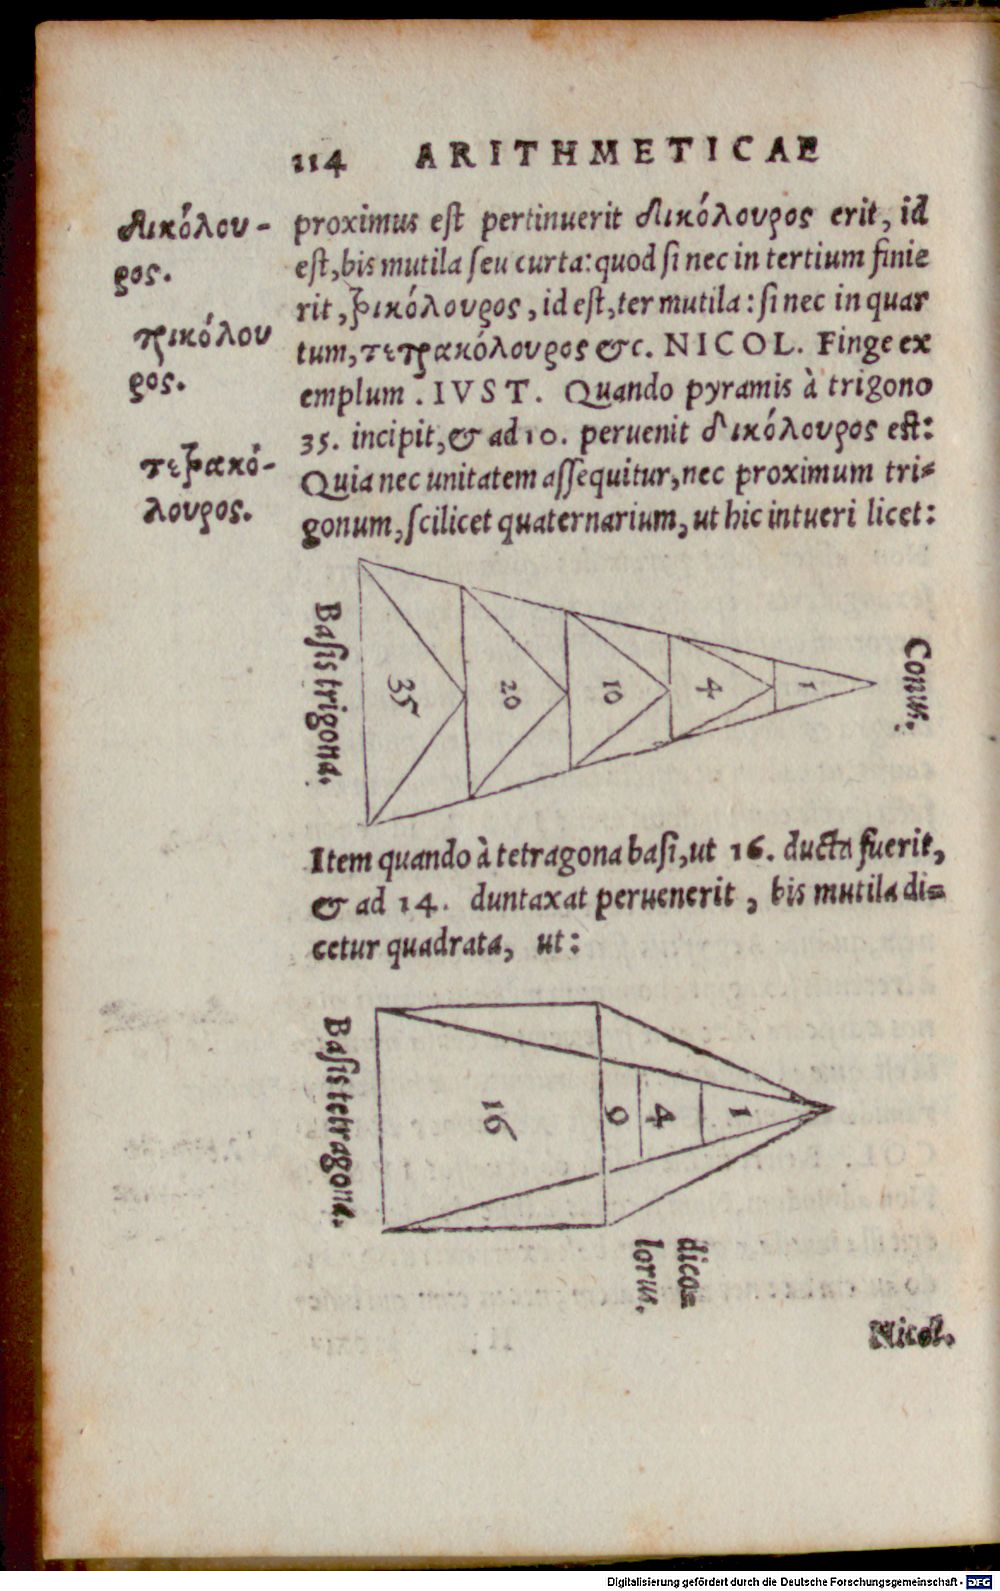 114 ARITHMETICAE
δικόλου-
ρος.
τρικόλου
ρος.
τετρακό-
λουρος.
proximus est pertinuerit δικόλουρος erit, id
est, bis mutila seu curta: quod si nec in tertium finie
rit, τρικόλουρος, id est, ter mutila: si nec in quar
tum, τετρακόλουρος &c. NICOL. Finge ex
emplum. IVST. Quando pyramis à trigono
35. incipit, & ad 10. peruenit δικόλουρος est:
Quia nec unitatem assequitur, nec proximum tri=
gonum, scilicet quaternarium, ut hic intueri licet:
Basis trigona.
35 20 10 4 1
Conus.
Item quando à tetragona basi, ut 16. ducta fuerit,
& ad 14. duntaxat peruenerit, bis mutila di=
cetur quadrata, ut:
Basis tetragona.
16 9 4 1
dico=
lorus.
Nicol.
Digitalisierung gefördert durch die Deutsche Forschungsgemeinschaft - DFG